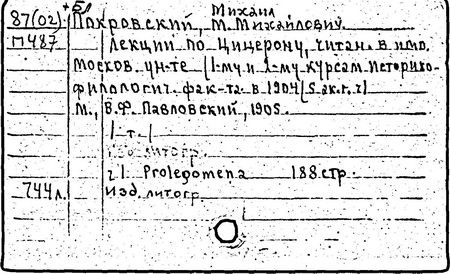 Михаил
87(02) +5л Покровский, М. Михайлович.
П487 Лекции по Цицерону, читан. в имп.
Москов. ун-те (1-му и 2-му курсам историко-
филологич. фак-та в 1904/5 ак. г.)
М., В.Ф. Павловский, 1905.
1 т. (
литогр.
ч 1. Prolegomena 188 стр.
744л. Изд. литогр.